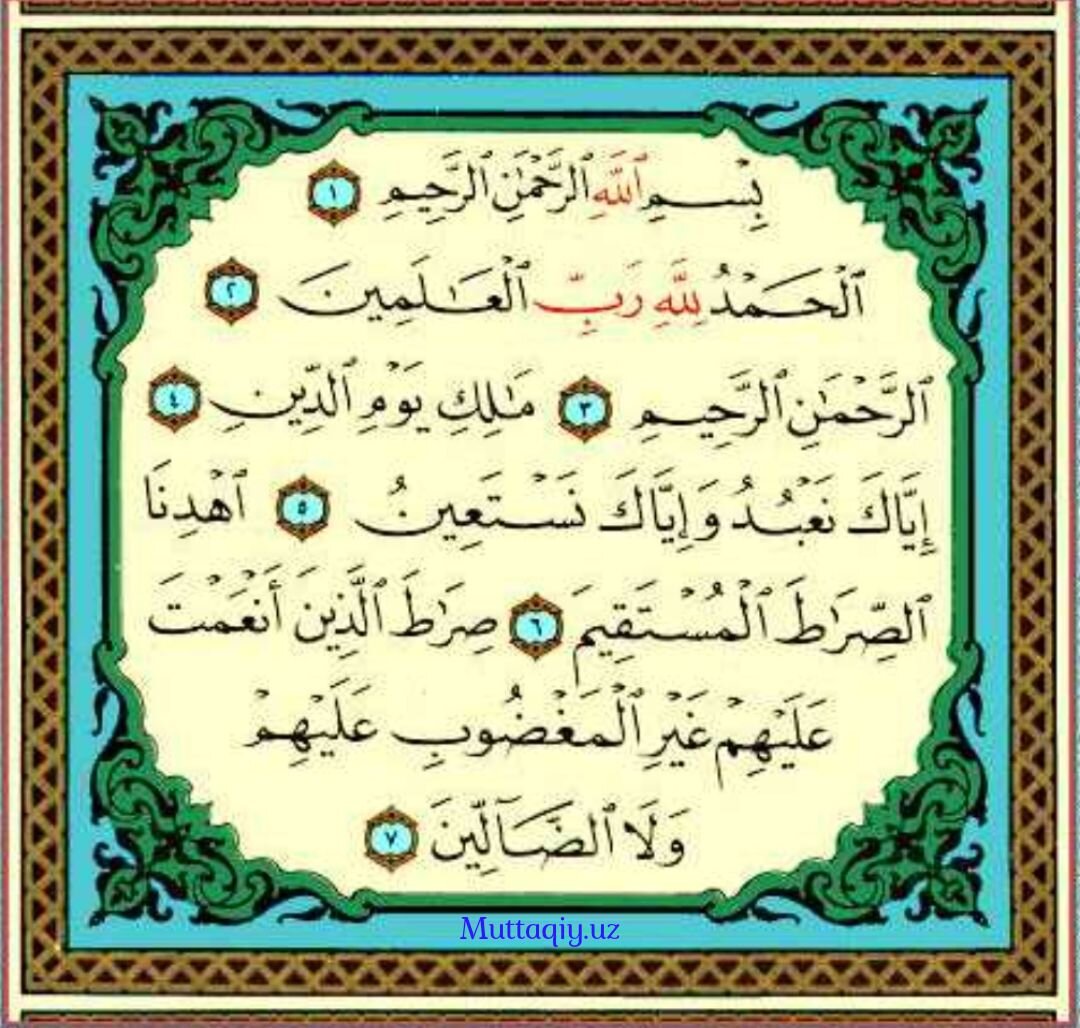 بِسْمِ ٱللَّهِ ٱلرَّحْمَٰنِ ٱلرَّحِيمِ ١
ٱلْحَمْدُ لِلَّهِ رَبِّ ٱلْعَٰلَمِينَ ٢
ٱلرَّحْمَٰنِ ٱلرَّحِيمِ ٣ مَٰلِكِ يَوْمِ ٱلدِّينِ ٤
إِيَّاكَ نَعْبُدُ وَإِيَّاكَ نَسْتَعِينُ ٥ ٱهْدِنَا
ٱلصِّرَٰطَ ٱلْمُسْتَقِيمَ ٦ صِرَٰطَ ٱلَّذِينَ أَنْعَمْتَ
عَلَيْهِمْ غَيْرِ ٱلْمَغْضُوبِ عَلَيْهِمْ
وَلَا ٱلضَّآلِّينَ ٧
Muttaqiy.uz